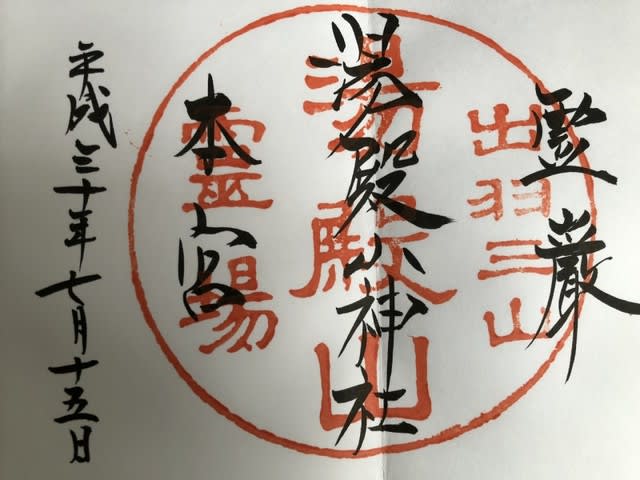 霊巌
湯殿山神社
本宮
平成三十年七月十五日
出羽三山
湯殿山
霊場